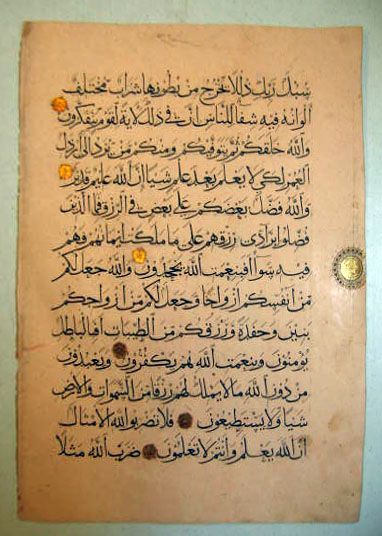 سبل ربك ذللا يخرج من بطونها شراب مختلف
الوانه فيه شفا للناس ان في ذلك لاية لقوم يتفكرون
والله خلقكم ثم يتوفيكم ومنكم من يرد الى ارذل
العمر لكي لا يعلم بعد علم شيا ان الله عليم قدير
والله فضل بعضكم على بعض في الرزق فما الذين
فضلوا برادي رزقهم على ما ملكت ايمانهم فهم
فيه سوا افبنعمت الله يجحدون والله جعل لكم
من انفسكم ازواجا وجعل لكم من ازواجكم
بنين وحفدة ورزقكم من الطيبات افبالباطل
يومنون وبنعمت الله هم يكفرون ويعبدون
من دون الله ما لا يملك لهم رزقا من السموات والارض
شيا ولا يستطيعون فلا تضربوا لله الامثال
ان الله يعلم وانتم لا تعلمون ضرب الله مثلا